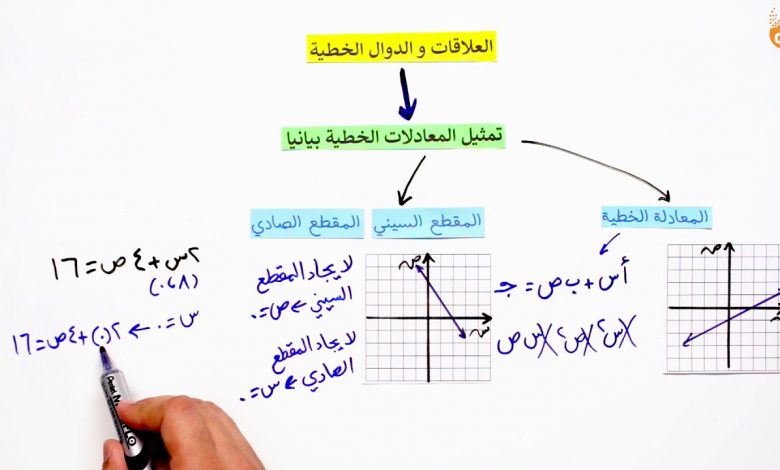 العلاقات و الدوال الخطية
تمثيل المعادلات الخطية بيانيا
المعادلة الخطية
أس + ب ص = جـ
س² ص² س ص
ص
المقطع السيني
المقطع الصادي
ص
س
لايجاد المقطع
السيني ← ص = ٠
لايجاد المقطع
الصادي ← س = ٠
٢س + ٤ص = ١٦
(٠،٨)
س = ٠ ← ٢(٠) + ٤ص = ١٦
Pentel